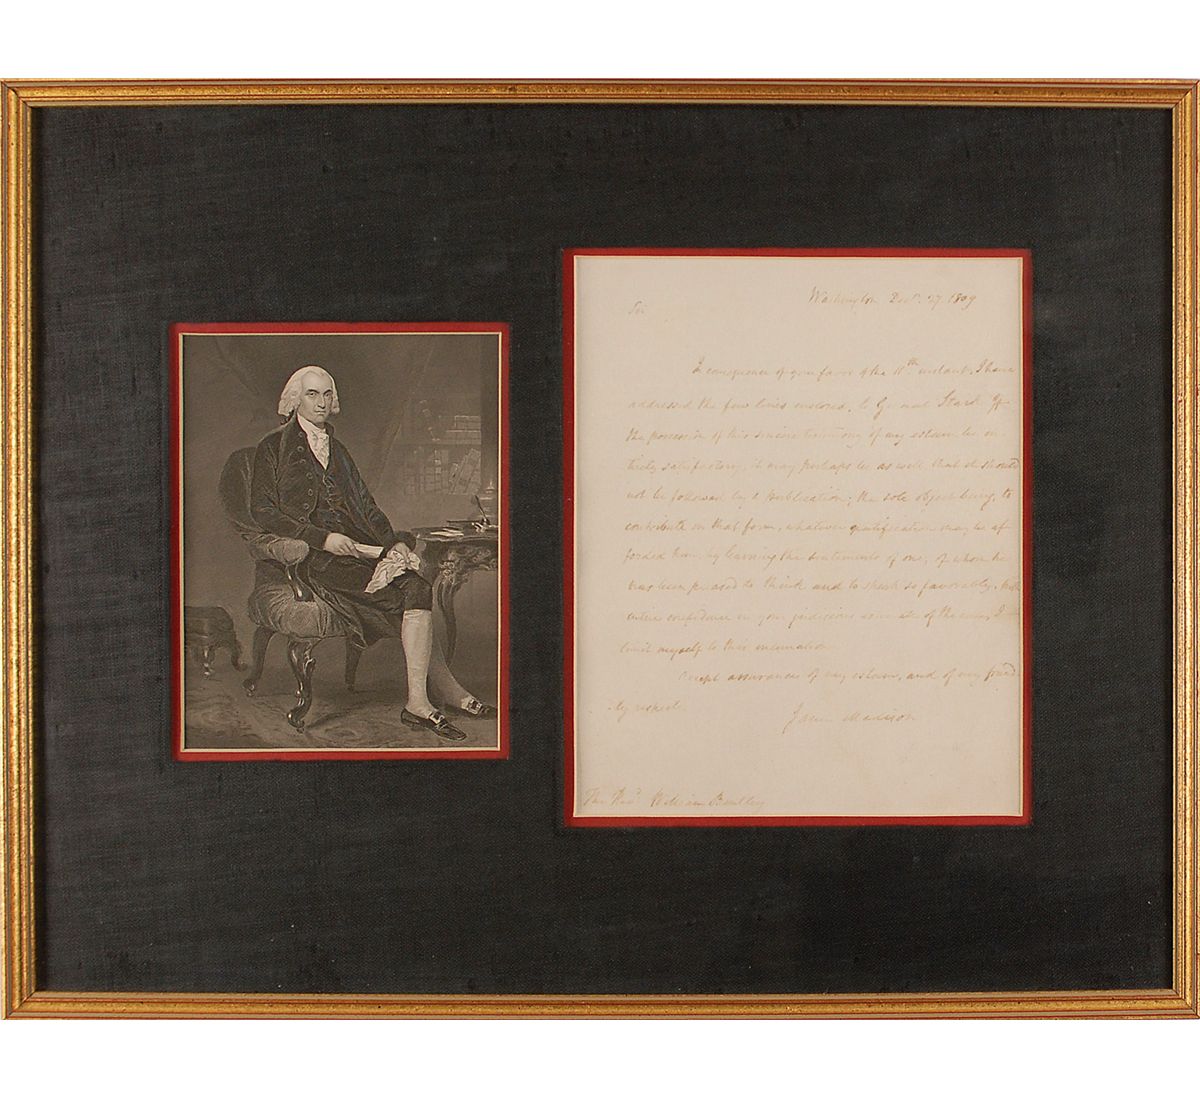 Washington Decr. 27. 1809
Sir
In consequence of your favor of the 11th instant, I have
addressed the few lines inclosed, to General Stark. If
the possession of this sincere testimony of my esteem be en-
tirely satisfactory, it may perhaps be as well that it should
not be followed by a publication; the sole object being, to
contribute in that form, whatever gratification may be af-
forded him by learning the sentiments of one, of whom he
has been pleased to think and to speak so favorably. With
entire confidence in your judicious use of the I
commit myself to this intimation.
Accept assurances of my esteem, and of my friend-
ly respects.
James Madison
The Revd. William Bentley